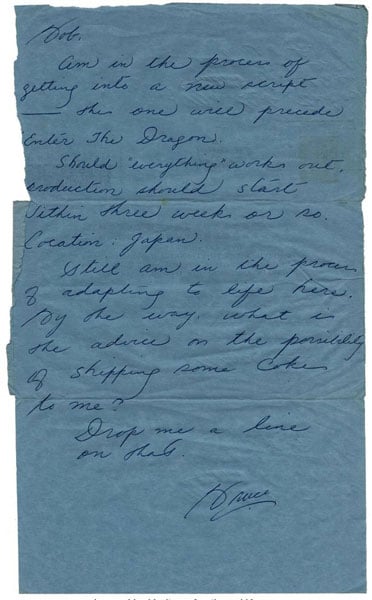 Bob,
Am in the process of
getting into a new script
— this one will precede
Enter The Dragon.
Should "everything" works out,
production should start
within three weeks or so.
Location: Japan.
Still am in the process
of adapting to life here.
By the way, what is
the advice on the possibility
of shipping some Coke
to me?
Drop me a line
on that.
Bruce